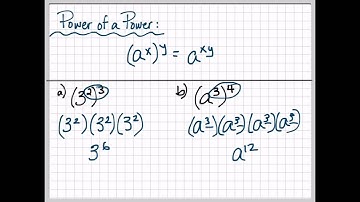 Power of a Power:
(aˣ)ʸ = aˣʸ
a) (3²)³
(3²)(3²)(3²)
3⁶
b) (a³)⁴
(a³)(a³)(a³)(a³)
a¹²